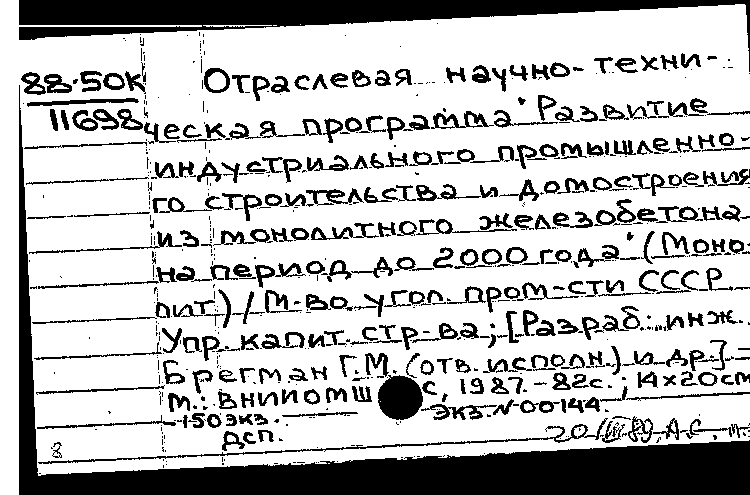 88-50К Отраслевая научно-техни-
11698 ческая программа "Развитие
индустриального промышленно-
го строительства и домостроения
из монолитного железобетона
на период до 2000 года" (Моно-
лит) / М-во угол. пром-сти СССР
Упр. капит. стр-ва; [Разраб.: инж.
Брегман Г.М. (отв. исполн.) и др.] -
М.: ВНИИОМШ С, 1987. - 82с.; 14х20см
-150экз. Экз. №00144.
ДСП.
8